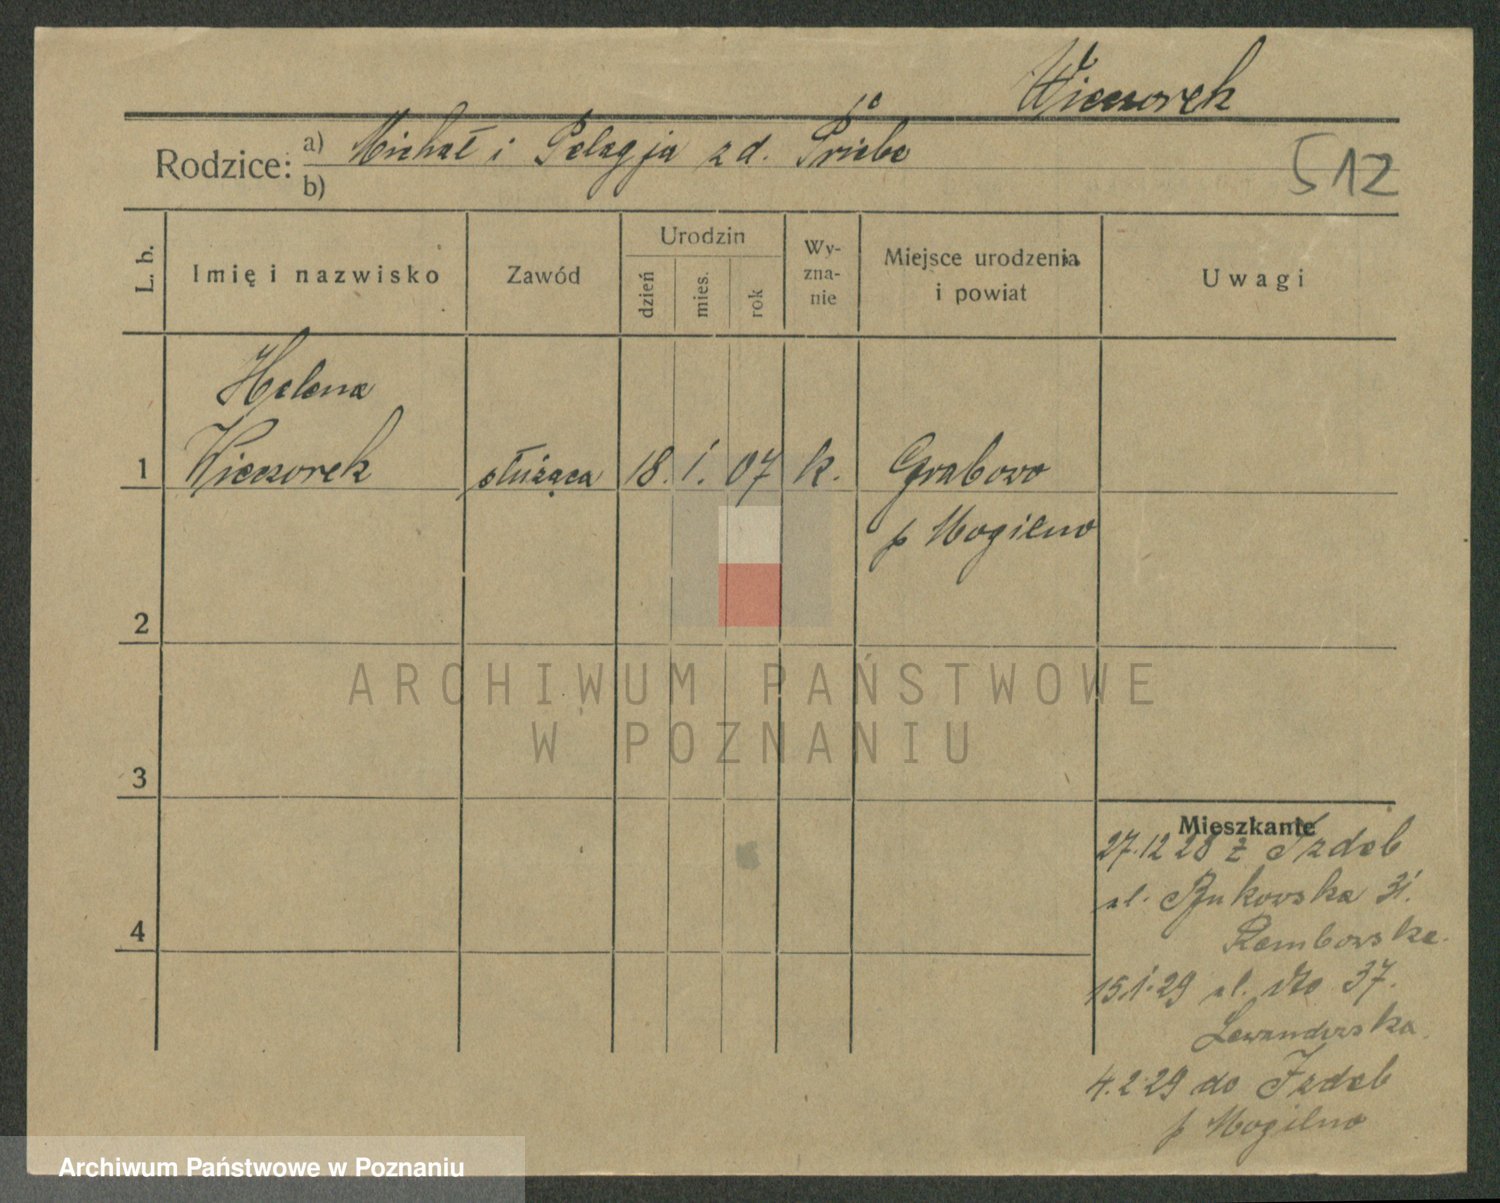 Wieczorek
Rodzice: a) Michał i Pelagja z d. Priebe
b)
512
L. b.
Imię i nazwisko
Zawód
Urodzin
dzień
mies.
rok
Wy-
zna-
nie
Miejsce urodzenia
i powiat
Uwagi
Helena
1 Wieczorek służąca 18. 1. 07 k. Grabowo
p Mogilno
2
3
4
ARCHIWUM PAŃSTWOWE
W POZNANIU
Mieszkanie
27.12 28 z Izdeb
ul. Bukowska 31.
Rembowska.
15.1.29 ul. 37.
Lewandowska.
4.2.29 do Izdeb
p Mogilno
Archiwum Państwowe w Poznaniu